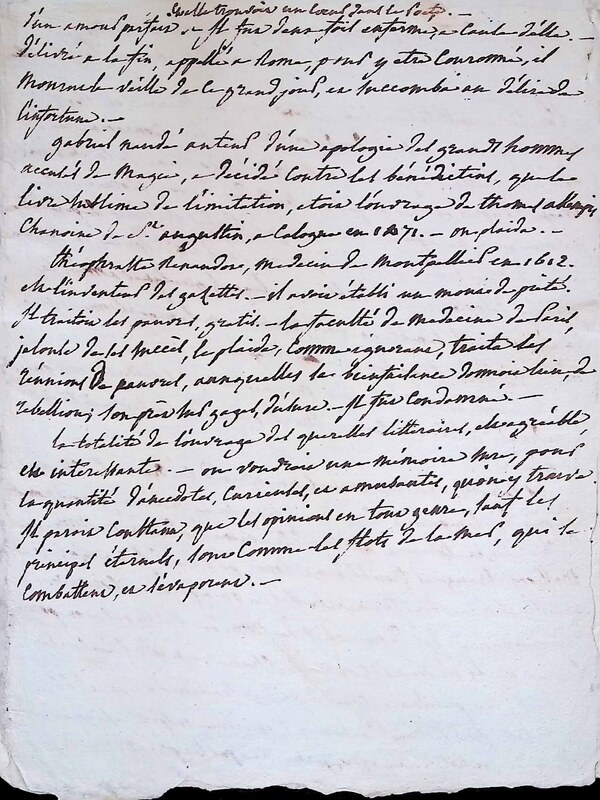 Qu'elle trouvoit un Coeur dans le Tasse. —
d'un amour parfait. — Il fut deux fois enfermé, a Cause d'elle. —
délivré a la fin, appellé a Rome, pour y etre Couronné, il
mourut la veille de Ce grand jour, et succomba au délire de
l'infortune. —
gabriel naudé auteur d'une apologie des grands hommes
accusés de Magie, a décidé Contre les bénédictins, que le
livre sublime de l'imitation, etoit l'ouvrage de thomas akempis
Chanoine de St. augustin, a Cologne en 1471. — on plaida. —
théophraste Renaudot, medecin de Montpellier en 1612.
est l'inventeur des gazettes. — il avoit établi un mont de piété.
Il traitoit les pauvres, gratis. — la faculté de medecine de Paris,
jalouse de ses succès, le plaida, Comme ignorant, traita les
réunions De pauvres, auxquelles sa bienfaisance donnoit lieu, de
rebellion; son prèt sur gages, d'usure. — Il fut Condamné. —
la totalité de l'ouvrage des querelles litteraires, est agréable,
et interessante. — on voudroit une mémoire sure, pour
la quantité d'anecdotes, Curieuses, et amusantes, qu'on y trouve.
Il paroit Constant, que les opinions en tout genre, sauf les
principes éternels, sont Comme les flots de la mer, qui se
Combattent, et s'évaporent. —